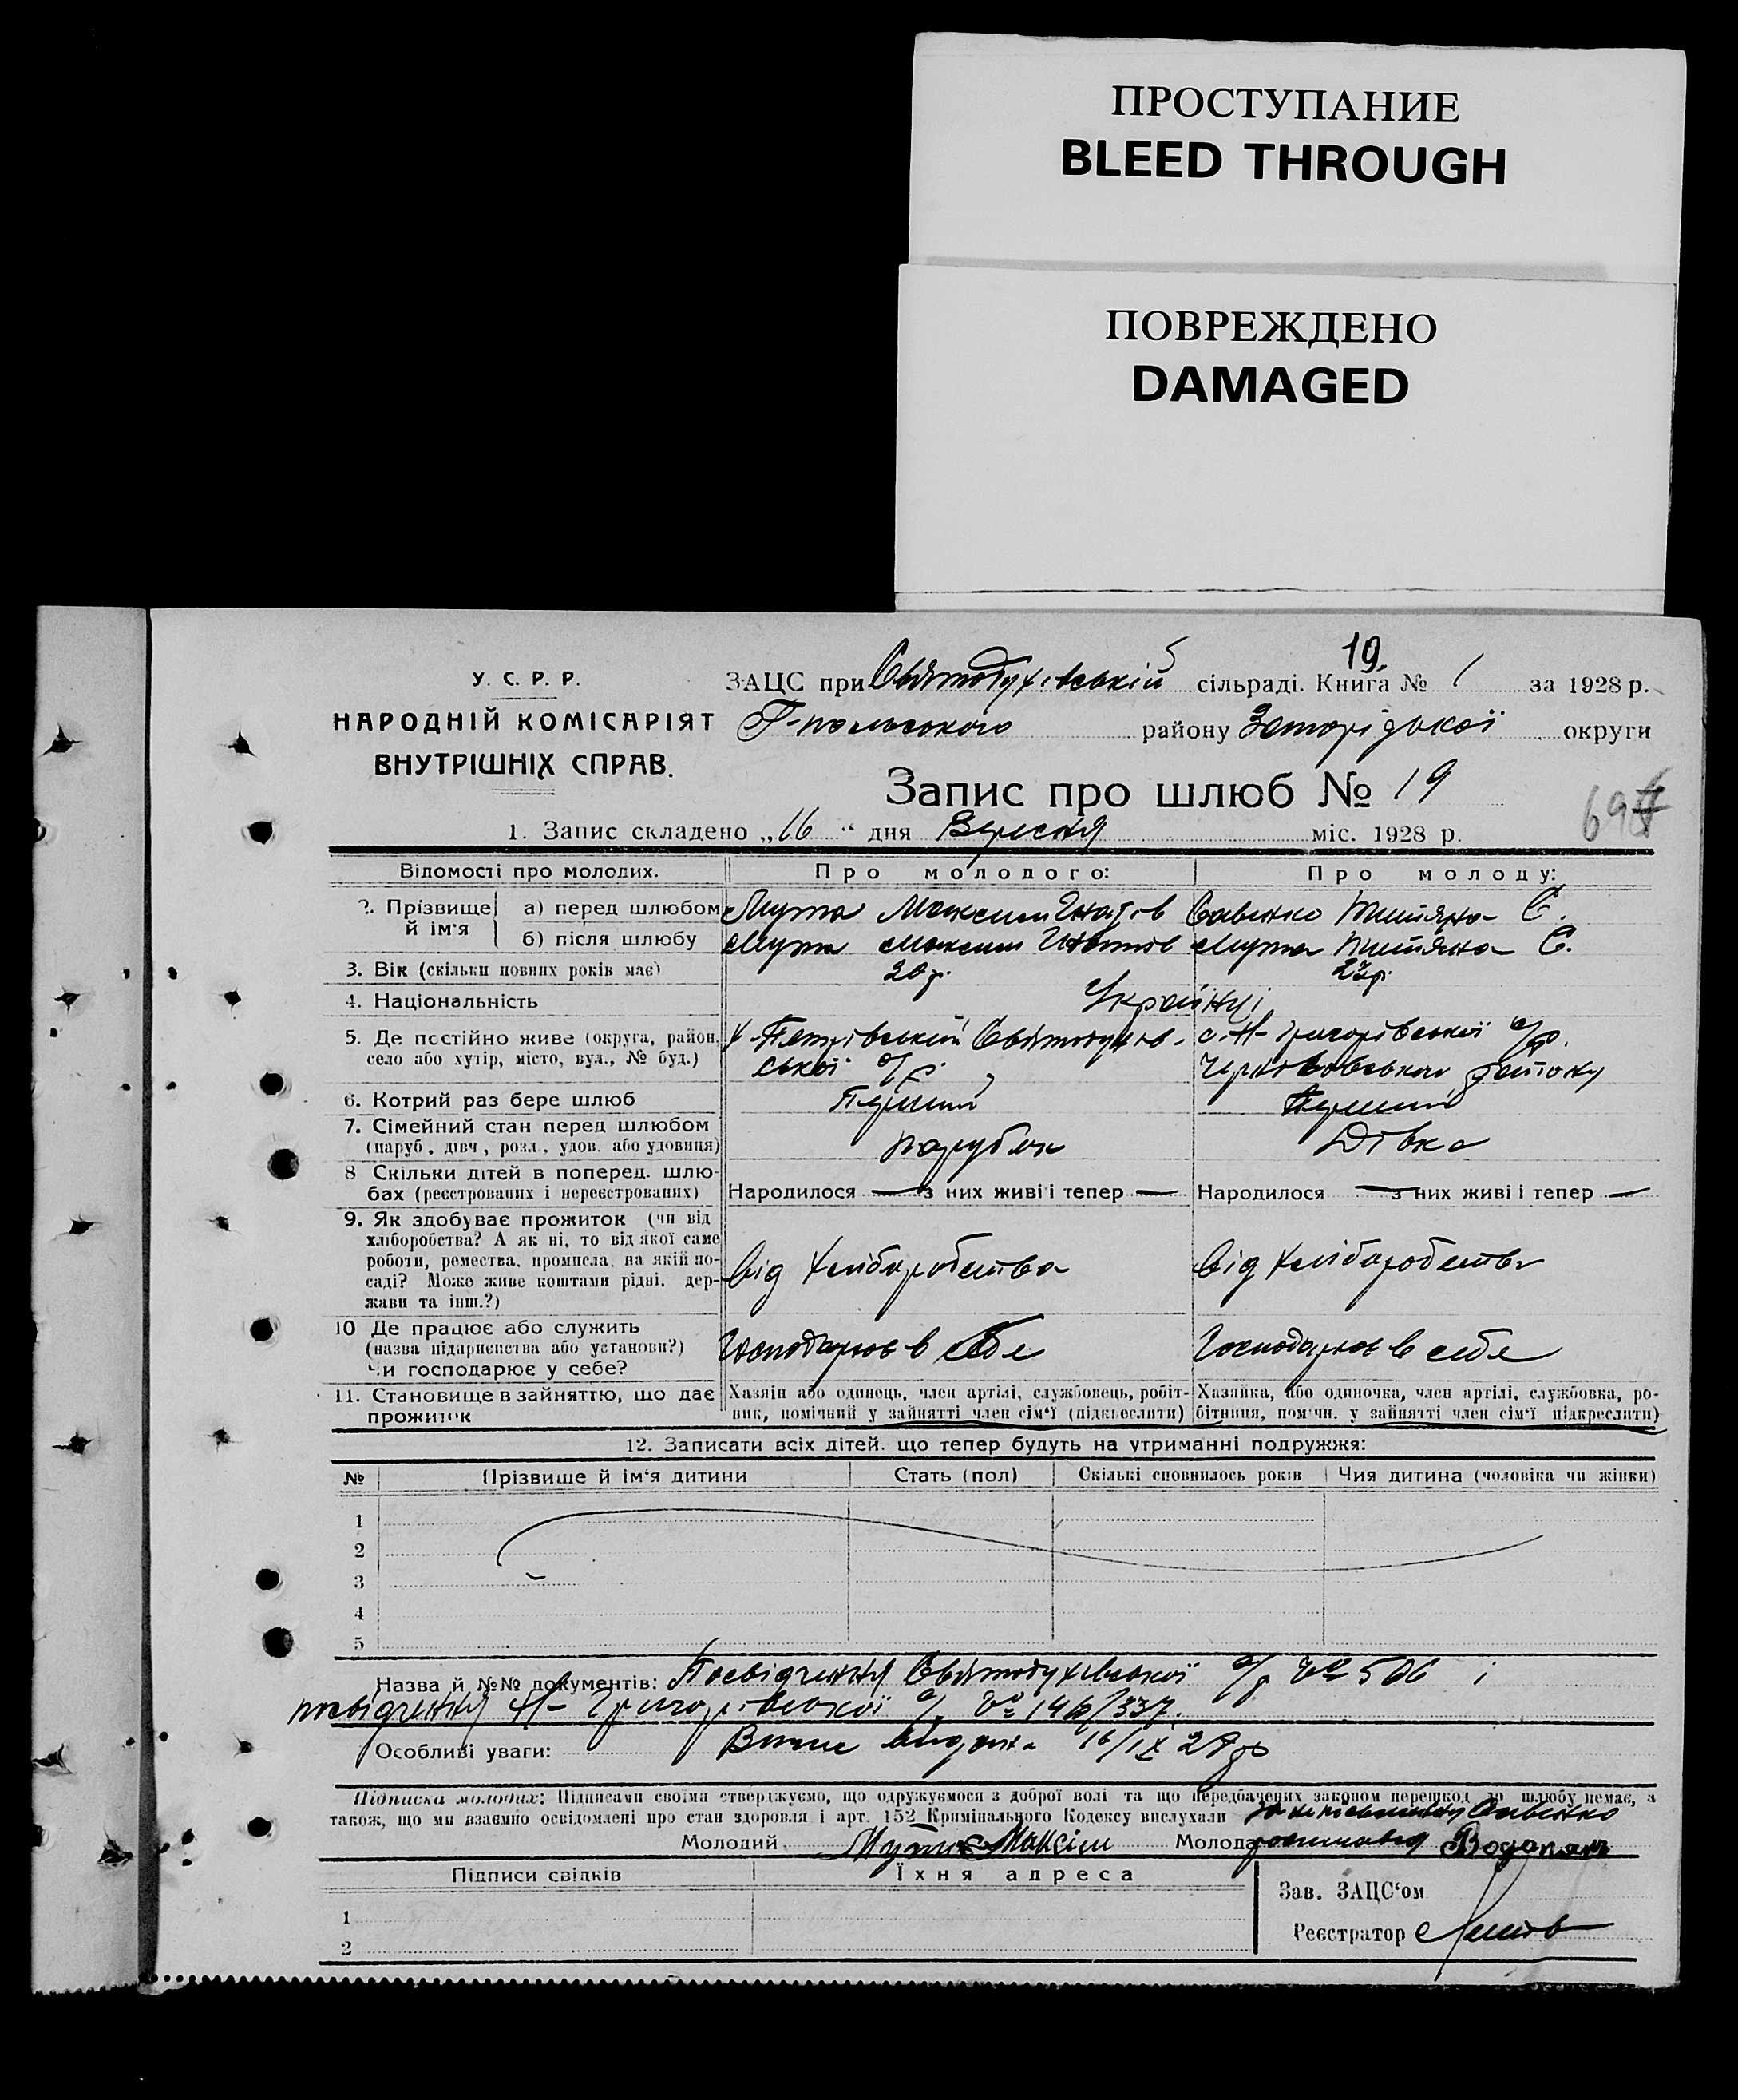 ПРОСТУПАНИЕ
BLEED THROUGH
ПОВРЕЖДЕНО
DAMAGED
19.
У. С. Р. Р.
НАРОДНІЙ КОМІСАРІЯТ
ВНУТРІШНІХ СПРАВ.
ЗАЦС при Святодухівській сільраді. Книга № 1 за 1928 р.
району округи
Запис про шлюб № 19
1. Запис складено „16“ дня Вересня міс. 1928 р.
Відомості про молодих. Про молодого: Про молоду:
2. Прізвище й ім'я
а) перед шлюбом Мута Максим Ігнатів Савенко Титяна С.
б) після шлюбу Мута Максим Ігнатів Мута Титяна С.
3. Вік (скільки повних років має) 20 р.
4. Національність Українці
5. Де постійно живе (округа, район, село або хутір, місто, вул., № буд.)
х. Петрівський Святодухів-
ської с/р.
с. Н-Григорівської с/р.
6. Котрий раз бере шлюб Перший Перший
7. Сімейний стан перед шлюбом
(паруб., дівч., розл., удов. або удовиця) парубок Дівка
8 Скільки дітей в поперед. шлюбах (реєстрованих і нереєстрованих)
Народилося — з них живі і тепер — Народилося — з них живі і тепер —
9. Як здобуває прожиток (чи від
хліборобства? А як ні, то від якої саме
роботи, ремества, промисла, на якій по-
саді? Може живе коштами рідні, дер-
жави та інш.?)
від хліборобства від хліборобства
10 Де працює або служить
(назва підприємства або установи?)
Чи господарює у себе?
Господарює в себе Господарює в себе
11. Становище в зайняттю, що дає
прожиток
Хазяїн або одинець, член артілі, службовець, робіт-
ник, помічний у зайнятті член сім'ї (підкреслити)
Хазяйка, або одиночка, член артілі, службовка, ро-
бітниця, помічн. у зайнятті член сім'ї підкреслити)
12. Записати всіх дітей, що тепер будуть на утриманні подружжя:
№ Прізвище й ім'я дитини Стать (пол) Скількі сповнилось років Чия дитина (чоловіка чи жінки)
1
2
3
4
5
Назва й №№ документів: Посвідчення Святодухівської с/р № 506 і
посвідчення Н-Григорівської с/р
Особливі уваги: 16/IX 28 р
Підписка молодих: Підписами своїми стверджуємо, що одружуємося з доброї волі та що передбачених законом перешкод до шлюбу немає, а
також, що ми взаємно освідомлені про стан здоровля і арт. 152 Кримінального Кодексу вислухали
за неписьменну Савенко
Молодий Мута Максім Молода розписався
Підписи свідків Їхня адреса
Зав. ЗАЦС'ом
Реєстратор
1
2